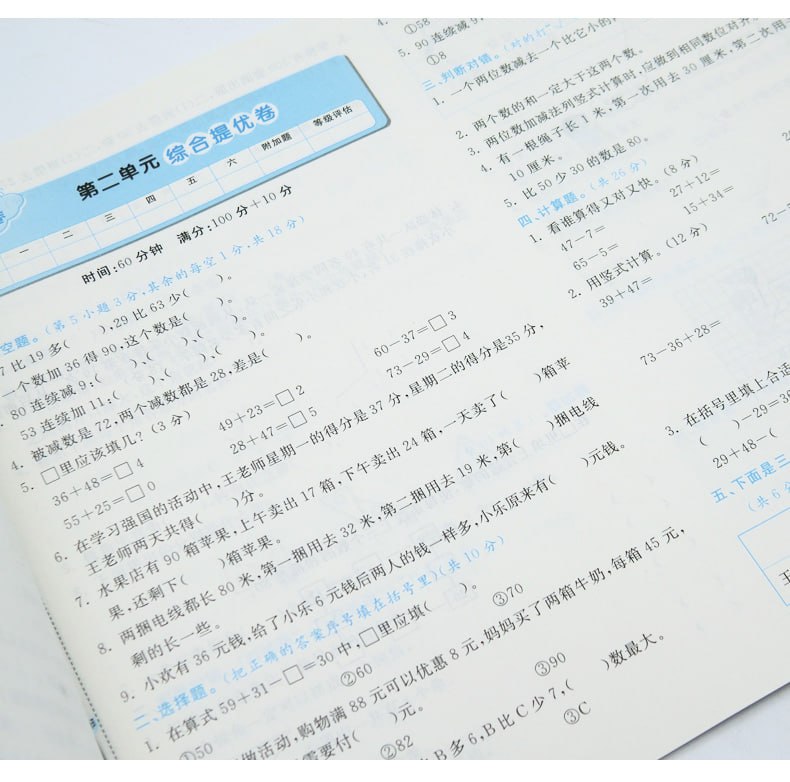 第二单元 综合提优卷
一 二 三 四 五 六 附加题 等级评估
时间:60分钟 满分:100分+10分
空题。(第5小题3分,其余的每空1分,共18分)
7比19多( ),29比63少( )。
一个数加36得90,这个数是( )。
80连续减9:( )、( )、( )、( )。
53连续加11:( )、( )、( )、( )。
4. 被减数是72,两个减数都是28,差是( )。
5. □里应该填几?(3分)
36+48=□4 49+23=□2 60-37=□3
55+25=□0 28+47=□5 73-29=□4
6. 在学习强国的活动中,王老师星期一的得分是37分,星期二的得分是35分,
王老师两天共得( )分。
7. 水果店有90箱苹果,上午卖出17箱,下午卖出24箱,一天卖了( )箱苹
果,还剩下( )箱苹果。
8. 两捆电线都长80米,第一捆用去32米,第二捆用去19米,第( )捆电线
剩的长一些。
9. 小欢有36元钱,给了小乐6元钱后两人的钱一样多,小乐原来有( )元钱。
二、选择题。(把正确的答案序号填在括号里)(共10分)
1. 在算式59+31-□=30中,□里应填( )。
①50 ②60 ③70
做活动,购物满88元可以优惠8元,妈妈买了两箱牛奶,每箱45元,
需要付( )元。
②82 ③90
比B多6,B比C少7,( )数最大。
③C
4.
①58
5. 90连续减9
①8
三、判断对错。(对的打
1. 一个两位数减去一个比它小的
2. 两个数的和一定大于这两个数。
3. 两位数加减法列竖式计算时,应做到相同数位对齐
4. 有一根绳子长1米,第一次用去30厘米,第二次用
10厘米。
5. 比50少30的数是80。
四、计算题。(共26分)
1. 看谁算得又对又快。(8分)
47-7= 27+12=
65-5= 15+34=
2. 用竖式计算。(12分)
39+47= 72-
73-36+28=
3. 在括号里填上合适
( )-29=36
29+48-(
五、下面是三
(共6分
王